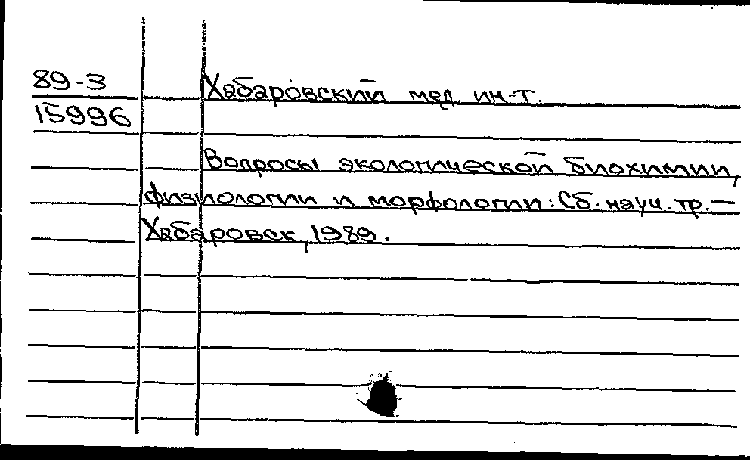 89-3 Хабаровский мед. ин-т.
15996
Вопросы экологической биохимии,
физиологии и морфологии: Сб. науч. тр. —
Хабаровск, 1989.